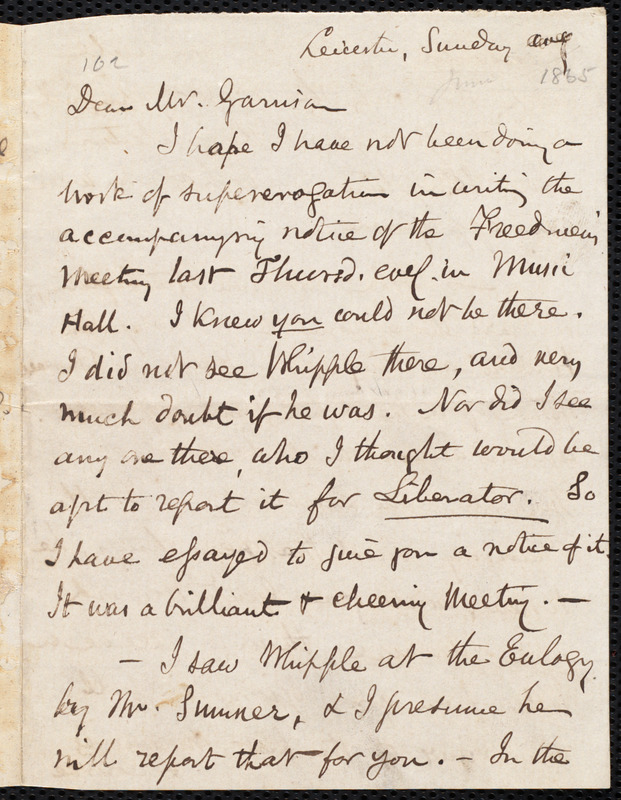 Leicester, Sunday eveg
102
June 1865
Dear Mr. Garrison
I hope I have not been doing a
work of supererogation in writing the
accompanying notice of the Freedmen's
Meeting last Thursd. eveg. in Music
Hall. I knew you could not be there.
I did not see Whipple there, and very
much doubt if he was. Nor did I see
any one there, who I thought would be
apt to report it for Liberator. So
I have essayed to give you a notice of it.
It was a brilliant & cheering Meeting. —
— I saw Whipple at the Eulogy
by Mr. Sumner, & I presume he
will report that for you. — In the